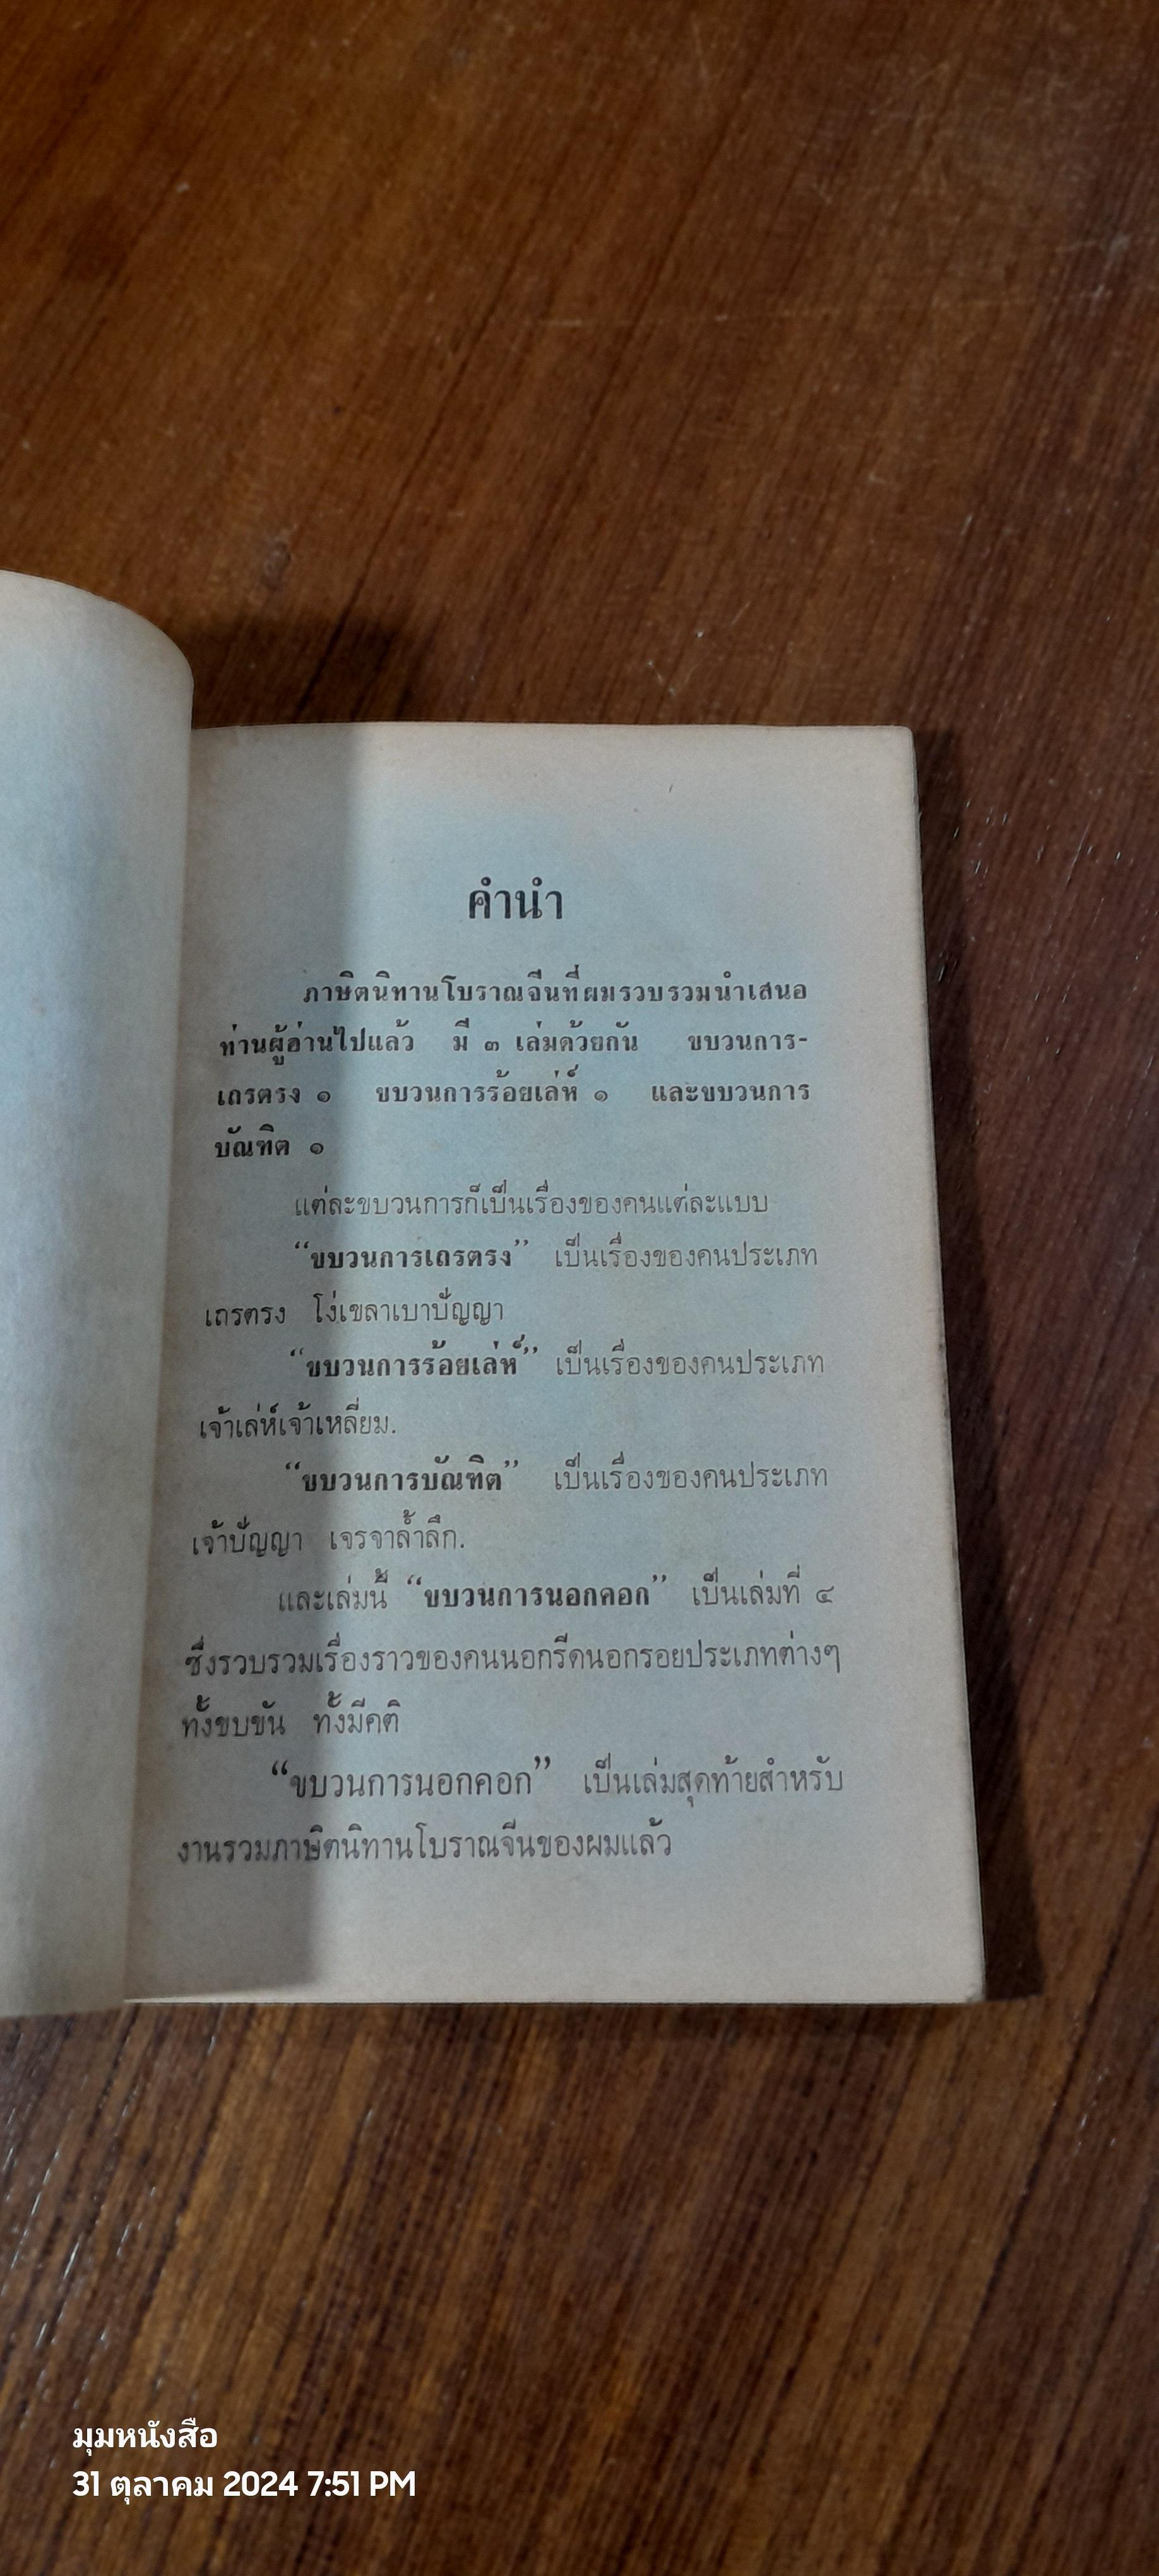 คำนำ
ภาษิตนิทานโบราณจีนที่ผมรวบรวมนำเสนอ
ท่านผู้อ่านไปแล้ว มี ๓ เล่มด้วยกัน ขบวนการ-
เถรตรง ๑ ขบวนการร้อยเล่ห์ ๑ และขบวนการ
บัณฑิต ๑
แต่ละขบวนการก็เป็นเรื่องของคนแต่ละแบบ
“ขบวนการเถรตรง” เป็นเรื่องของคนประเภท
เถรตรง โง่เขลาเบาปัญญา
“ขบวนการร้อยเล่ห์” เป็นเรื่องของคนประเภท
เจ้าเล่ห์เจ้าเหลี่ยม.
“ขบวนการบัณฑิต” เป็นเรื่องของคนประเภท
เจ้าปัญญา เจรจาล้ำลึก.
และเล่มนี้ “ขบวนการนอกคอก” เป็นเล่มที่ ๔
ซึ่งรวบรวมเรื่องราวของคนนอกรีดนอกรอยประเภทต่างๆ
ทั้งขบขัน ทั้งมีคติ
“ขบวนการนอกคอก” เป็นเล่มสุดท้ายสำหรับ
งานรวมภาษิตนิทานโบราณจีนของผมแล้ว
มุมหนังสือ
31 ตุลาคม 2024 7:51 PM